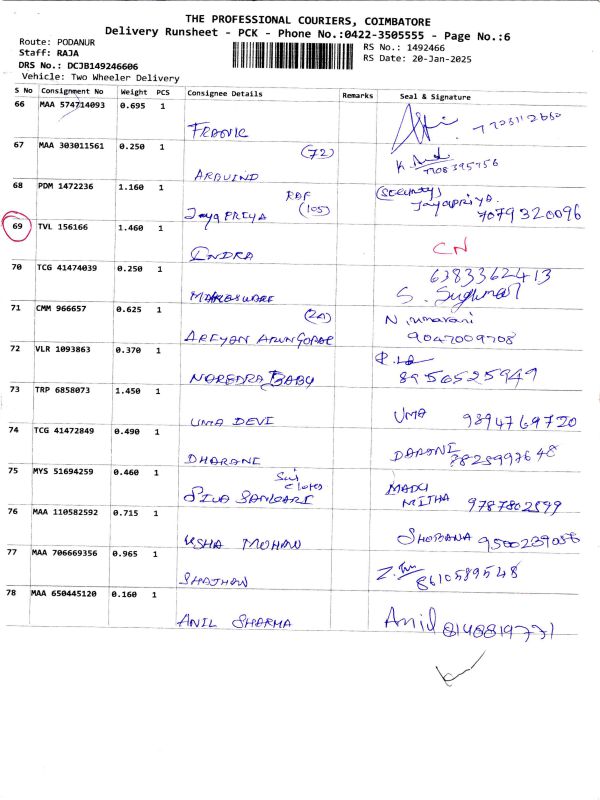 THE PROFESSIONAL COURIERS, COIMBATORE
Delivery Runsheet - PCK - Phone No.:0422-3505555 - Page No.:6
Route: PODANUR
Staff: RAJA
DRS No.: DCJB149246606
Vehicle: Two Wheeler Delivery
RS No.: 1492466
RS Date: 20-Jan-2025
S No Consignment No Weight PCS Consignee Details Remarks Seal & Signature
66 MAA 574714093 0.695 1
67 MAA 303011561 0.250 1 (72)
ARAVIND
68 PDM 1472236 1.160 1 (105) (SECURITY) Jayapriya
Jaya PRIYA 7079320096
69 TVL 156166 1.460 1 CN
INDRA
70 TCG 41474039 0.250 1 6383362413
S.
71 CMM 966657 0.625 1 (2A)
9047009708
72 VLR 1093863 0.370 1
8956525949
73 TRP 6858073 1.450 1
UMA DEVI UMA 9894769720
74 TCG 41472849 0.490 1
DHARANI DARANI
75 MYS 51694259 0.460 1 Sai
MITHA
76 MAA 110582592 0.715 1
USHA MOHAN SHOBANA
77 MAA 706669356 0.965 1
8610589548
78 MAA 650445120 0.160 1
ANIL SHARMA Anil 8148819771